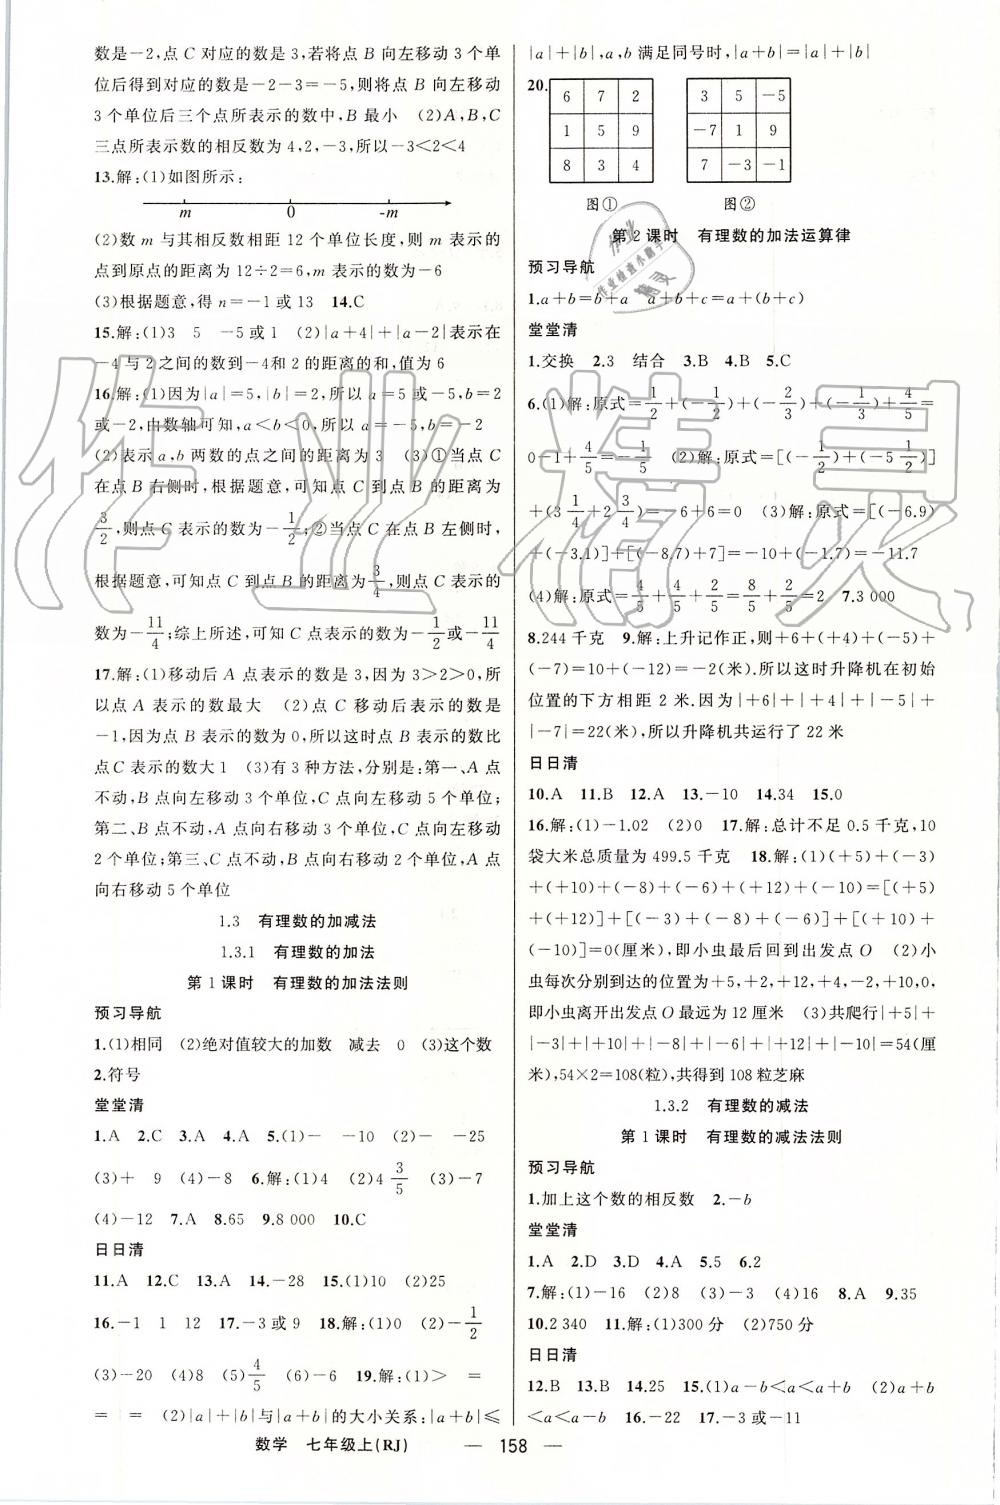 数是－2,点 C 对应的数是 3,若将点 B 向左移动 3 个单
位后得到对应的数是－2－3＝－5,则将点 B 向左移动
3 个单位后三个点所表示的数中,B 最小　(2)A,B,C
三点所表示数的相反数为 4,2,－3,所以－3＜2＜4
13.解:(1)如图所示:
m　0　-m
(2)数 m 与其相反数相距 12 个单位长度,则 m 表示的
点到原点的距离为 12÷2＝6,m 表示的数为－6
(3)根据题意,得 n＝－1 或 13　14.C
15.解:(1)3　5　－5 或 1　(2)|a＋4|＋|a－2|表示在
－4 与 2 之间的数到－4和 2 的距离的和,值为 6
16.解:(1)因为|a|＝5,|b|＝2,所以 a＝5或－5,b＝2
或－2,由数轴可知,a＜b＜0,所以 a＝－5,b＝－2
(2)表示 a,b 两数的点之间的距离为 3　(3)①当点 C
在点 B 右侧时,根据题意,可知点 C 到点 B 的距离为
3/2,则点 C 表示的数为－1/2;②当点 C 在点 B 左侧时,
根据题意,可知点 C 到点 B 的距离为3/4,则点 C 表示的
数为－11/4;综上所述,可知 C 点表示的数为－1/2或－11/4
17.解:(1)移动后 A 点表示的数是 3,因为 3＞2＞0,所
以点 A 表示的数最大　(2)点 C 移动后表示的数是
－1,因为点 B 表示的数为 0,所以这时点 B 表示的数比
点 C 表示的数大1　(3)有 3 种方法,分别是:第一、A 点
不动,B 点向左移动 3 个单位,C 点向左移动 5 个单位;
第二、B 点不动,A 点向右移动 3 个单位,C 点向左移动
2 个单位;第三、C 点不动,B 点向右移动 2 个单位,A 点
向右移动 5 个单位
1.3　有理数的加减法
1.3.1　有理数的加法
第 1 课时　有理数的加法法则
预习导航
1.(1)相同　(2)绝对值较大的加数　减去　0　(3)这个数
2.符号
堂堂清
1.A　2.C　3.A　4.A　5.(1)－　－10　(2)－　－25
(3)＋　9　(4)－8　6.解:(1)4　(2)4 3/5　(3)－7
(4)－12　7.A　8.65　9.8 000　10.C
日日清
11.A　12.C　13.A　14.－28　15.(1)10　(2)25
16.－1　1　12　17.－3或 9　18.解:(1)0　(2)－1/2
(3)－20　(4)8　(5)4/5　(6)－6　19.解:(1)＞　＝
＝　＝　(2)|a|＋|b|与|a＋b|的大小关系:|a＋b|≤
|a|＋|b|,a,b 满足同号时,|a＋b|＝|a|＋|b|
20.
6　7　2
1　5　9
8　3　4
图①
3　5　－5
－7　1　9
7　－3　－1
图②
第 2 课时　有理数的加法运算律
预习导航
1.a＋b＝b＋a　a＋b＋c＝a＋(b＋c)
堂堂清
1.交换　2.3　结合　3.B　4.B　5.C
6.(1)解:原式＝1/2＋(－1/2)＋(－2/3)＋(－1/3)＋4/5＝
0－1＋4/5＝－1/5　(2)解:原式＝[(－1/2)＋(－5 1/2)]
＋(3 1/4＋2 3/4)＝－6＋6＝0　(3)解:原式＝[(－6.9)
＋(－3.1)]＋[(－8.7)＋7]＝－10＋(－1.7)＝－11.7
(4)解:原式＝4/5＋4/5＋2/5＝8/5＋2/5＝2　7.3 000
8.244 千克　9.解:上升记作正,则＋6＋(＋4)＋(－5)＋
(－7)＝10＋(－12)＝－2(米),所以这时升降机在初始
位置的下方相距 2 米.因为|＋6|＋|＋4|＋|－5|＋
|－7|＝22(米),所以升降机共运行了 22 米
日日清
10.A　11.B　12.A　13.－10　14.34　15.0
16.解:(1)－1.02　(2)0　17.解:总计不足 0.5 千克,10
袋大米总质量为 499.5 千克　18.解:(1)(＋5)＋(－3)
＋(＋10)＋(－8)＋(－6)＋(＋12)＋(－10)＝[(＋5)
＋(＋12)]＋[(－3)＋(－8)＋(－6)]＋[(＋10)＋
(－10)]＝0(厘米),即小虫最后回到出发点 O　(2)小
虫每次分别到达的位置为＋5,＋2,＋12,＋4,－2,＋10,0,
即小虫离开出发点 O 最远为 12 厘米　(3)共爬行|＋5|＋
|－3|＋|＋10|＋|－8|＋|－6|＋|＋12|＋|－10|＝54(厘
米),54×2＝108(粒),共得到 108 粒芝麻
1.3.2　有理数的减法
第 1 课时　有理数的减法法则
预习导航
1.加上这个数的相反数　2.－b
堂堂清
1.A　2.D　3.D　4.A　5.5　6.2
7.解:(1)－16　(2)8　(3)－3　(4)16　8.A　9.35
10.2 340　11.解:(1)300 分　(2)750 分
日日清
12.B　13.B　14.25　15.(1)a－b＜a＜a＋b　(2)a＋b
＜a＜a－b　16.－22　17.－3 或－11
数学　七年级上(RJ)　—　158　—
作业精灵